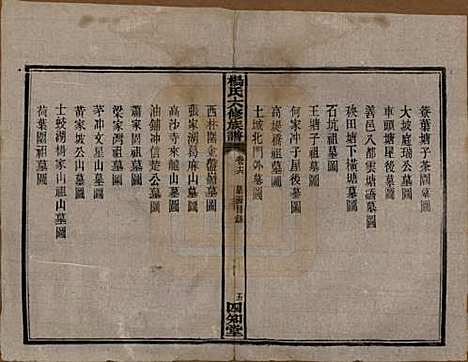 寮葉塘子茶園墓圖
大坡庭瑞公墓圖
車頭塘尾後墓圖
善邑八都雲塘語墓圖
秧田塘下橫塘墓圖
石坑祖墓圖
王塘子祖墓圖
何家沖子屋後墓圖
高堤橋祖墓圖
土城北門外墓圖
楊氏六修族譜
卷十六
墓圖目錄
五
四知堂
西林園金盤嶺墓圖
張家湖葛麻山墓圖
高沙寺來龍山墓圖
油鋪沖信房墓圖
蕭家園祖墓圖
梁家灣祖墓圖
茅沖文星山墓圖
黃家坡公山墓圖
士蛟湖楊家山祖山墓圖
荷葉園祖墓圖